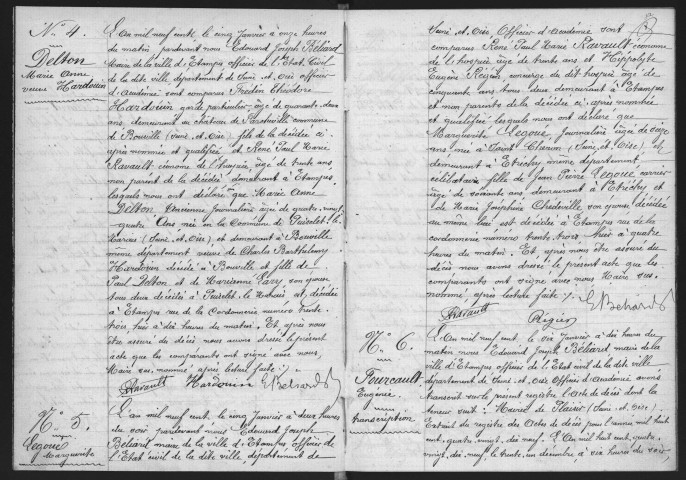 No. 4.
Delton
Marie Anne
veuve Hardouin
L'An mil neuf cent, le cinq Janvier à onze heures
du matin, pardevant nous Edouard Joseph Béliard
Maire de la ville d'Etampes officier de l'Etat-Civil
de la dite ville, département de Seine-et-Oise officier
d'académie sont comparus Théodore
Hardouin garde particulier, âgé de quarante deux
ans, demeurant au château de commune
de Bouville (Seine-et-Oise), fils de la décédée ci-
après nommée et qualifiée et René Paul Marie
Ravault, économe de l'hospice, âgé de trente ans
non parent de la décédée demeurant à Etampes,
lesquels nous ont déclaré que Marie Anne
Delton ancienne journalière âgée de quatre-vingt-
quatre ans née en la Commune de Puiselet-le-
Marais (Seine-et-Oise) et demeurant à Bouville
même département, veuve de Charles Barthélemy
Hardouin décédé à Bouville et fille de
Paul Delton et de Marianne son épouse
tous deux décédés à Puiselet-le-Marais, est décédée
à Etampes rue de la Cordonnerie numéro trente-
trois, à dix heures du matin. Et, après nous
être assuré du décès nous avons dressé le présent
acte que les comparants ont signé avec nous,
Maire sus-nommé, après lecture faite./.
Ravault Hardouin E. Béliard
No. 5.
Legoué
Marguerite
L'An mil neuf cent, le cinq Janvier à deux heures
du soir pardevant nous Edouard Joseph
Béliard maire de la ville d'Etampes officier de
l'Etat-civil de la dite ville, département de
Seine-et-Oise, Officier d'Académie sont
comparus René Paul Marie Ravault économe
de l'hospice âgé de trente ans et Hippolyte
Eugène Régien, concierge du dit hospice âgé de
cinquante ans tous deux demeurant à Etampes
et non parents de la décédée ci-après nommée
et qualifiée lesquels nous ont déclaré que
Marguerite Legoué, journalière âgée de seize
ans née à Saint Chéron (Seine-et-Oise), et
demeurant à Etréchy même département,
célibataire fille de Jean Pierre Legoué carrier
âgé de soixante ans demeurant à Etréchy et
de Marie Joséphine Chedeville son épouse décédée
au même lieu est décédée à Etampes rue de la
cordonnerie numéro trente-trois hier à quatre
heures du matin. Et après nous être assuré du
décès nous avons dressé le présent acte que les
comparants ont signé avec nous Maire sus-
nommé, après lecture faite./.
E. Béliard
Ravault
Régien
No. 6.
Fourcault
Eugénie
transcription
L'An mil neuf cent, le six Janvier à dix heures du
matin nous Edouard Joseph Béliard maire de la
ville d'Etampes officier de l'Etat-civil de la dite ville,
département de Seine-et-Oise officier d'académie avons
transcrit sur le présent registre l'acte de décès dont la
teneur suit: Mairie de Plaisir (Seine-et-Oise).
Extrait du registre des Actes de décès pour l'année mil huit
cent quatre-vingt-dix-neuf. L'An mil huit cent quatre-
vingt-dix-neuf, le trente-un décembre, à six heures du soir,